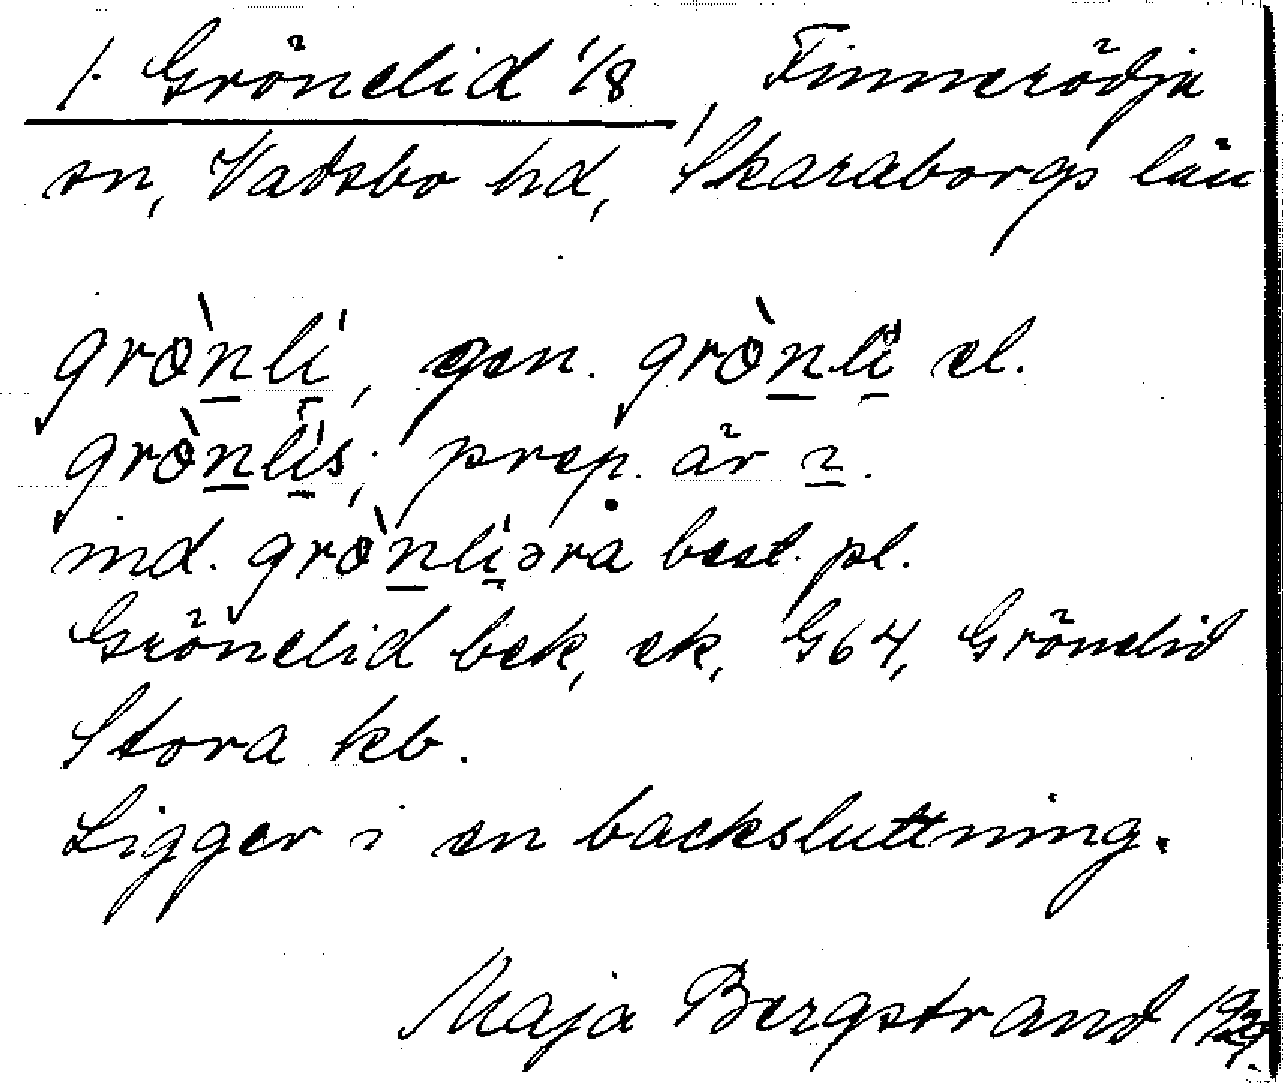 1. Grönelid 1/8, Finnerödja
sn, Vadsbo hd, Skaraborgs län
grò̀nli, gen. grò̀nli el.
grò̀nlis; prep. är i.
ind. grò̀nliəra best. pl.
Grönelid bek, ek, G64, Grönelid
Stora kb.
Ligger i en backsluttning.
Maja Bergstrand